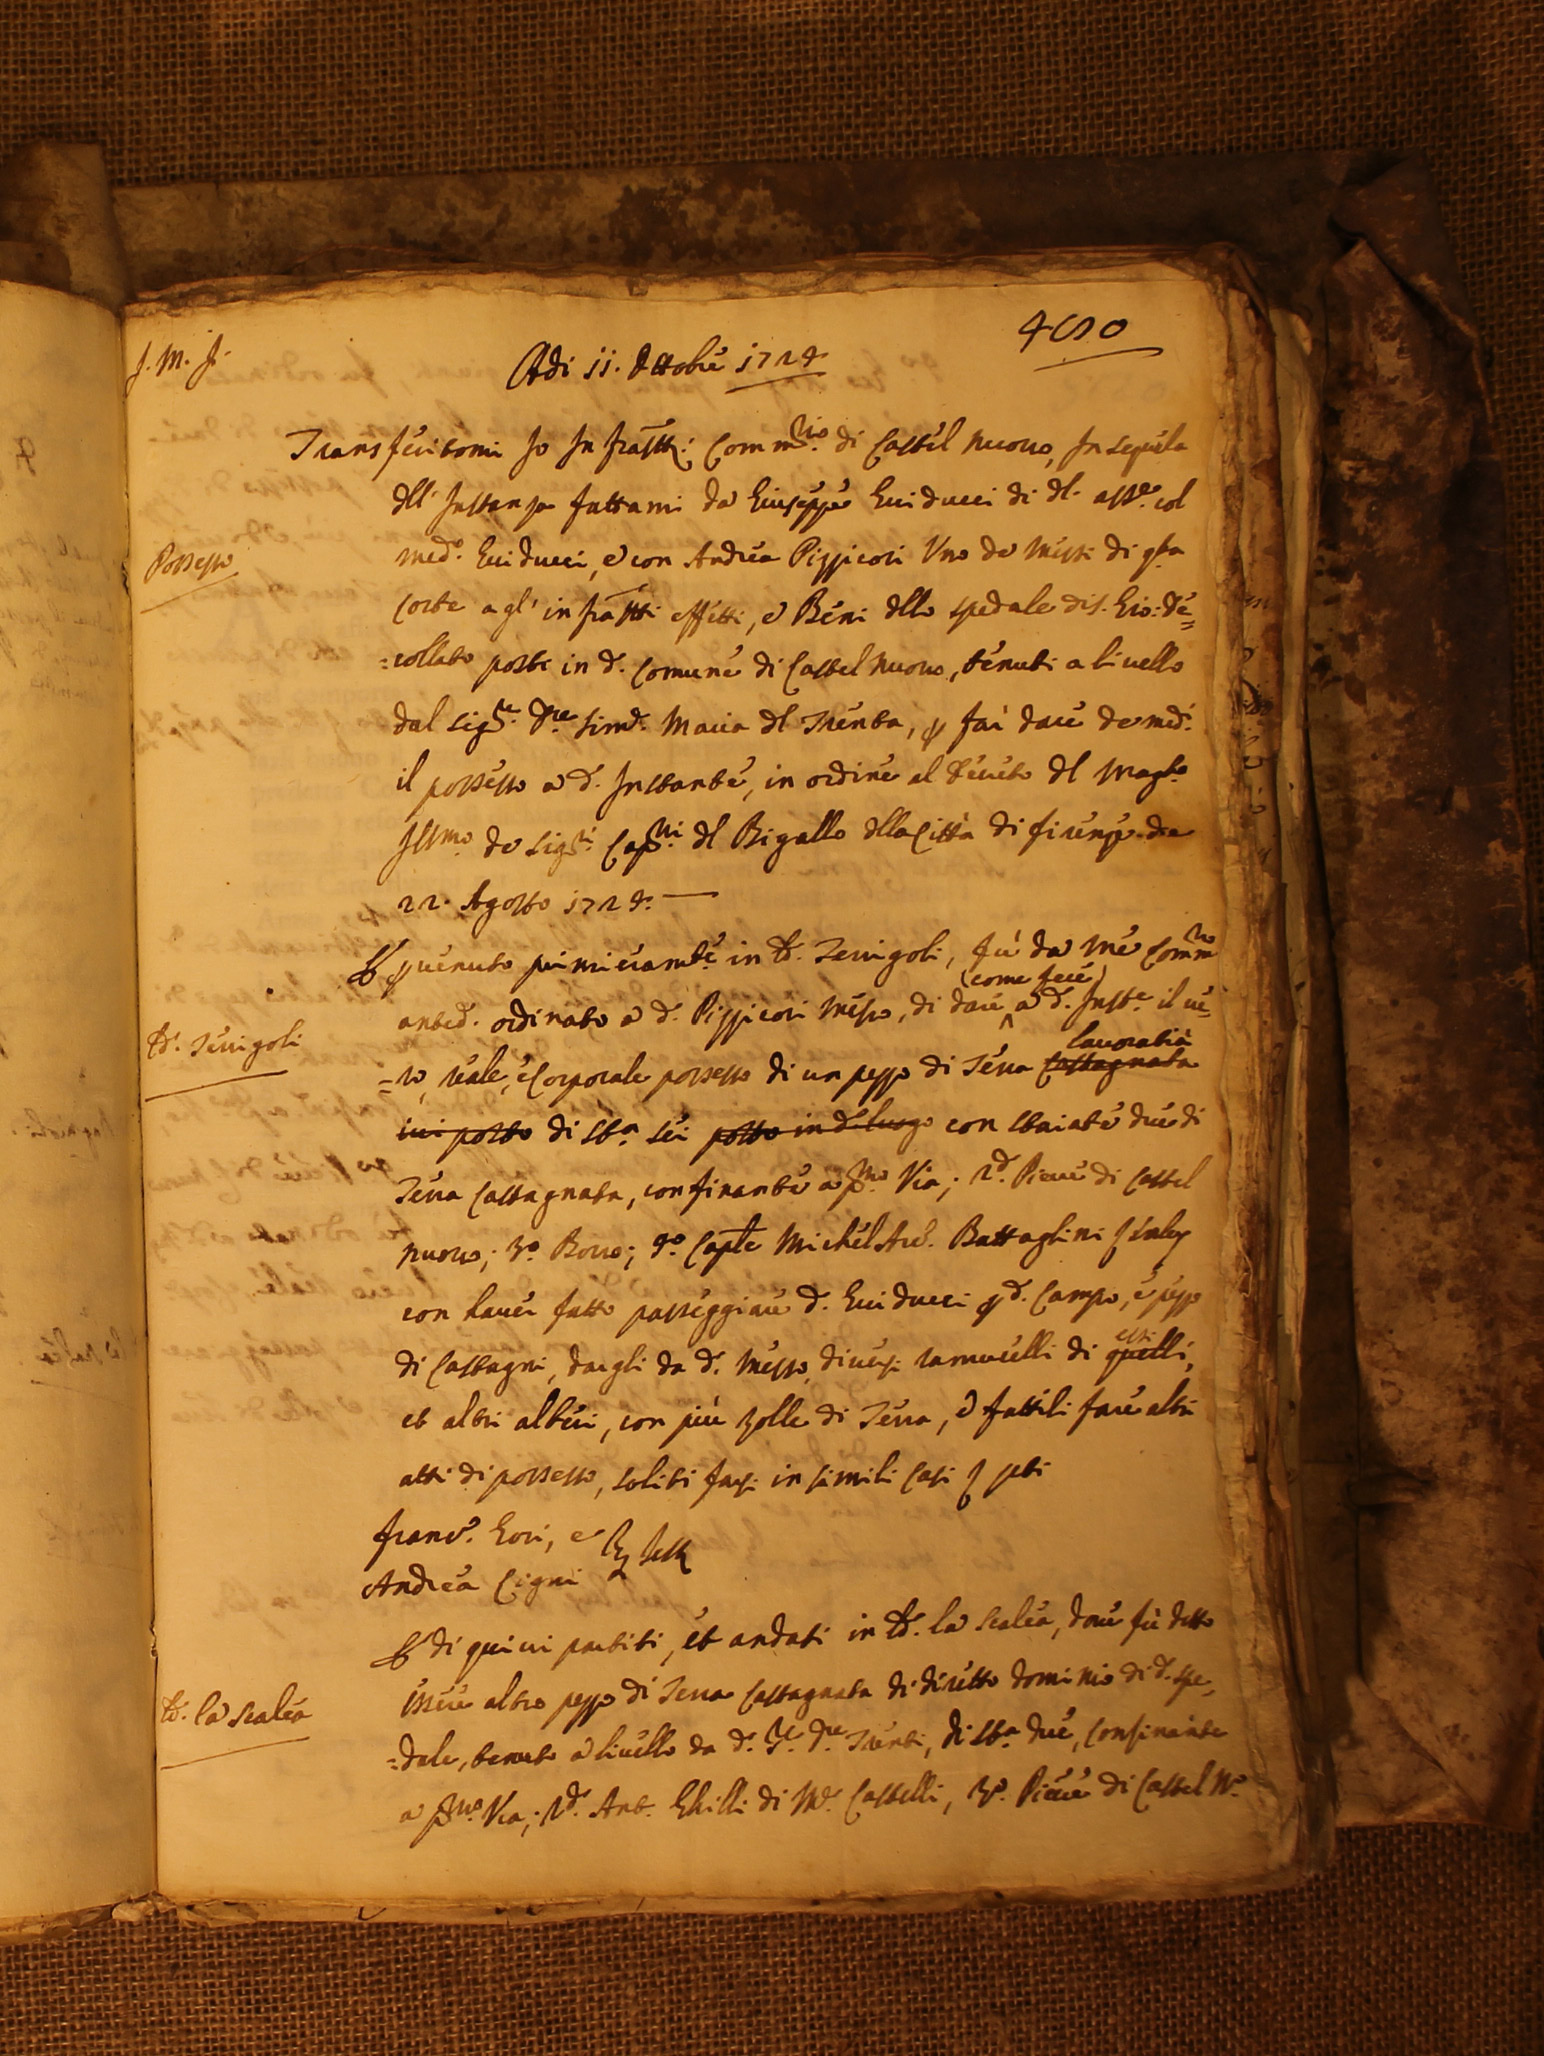 J. M. J.
450
Adi 11. Ottobre 1724
Transferitomi Io Infratto: Commrio. di Castel Nuovo, In sequela
dll' Instanza fattami da Giuseppe Guiducci di dl. asse. col
Possesso
medo. Guiducci, e con Andrea Pizzicori Uno de Messi di qta
Corte agl' infratti effetti, e Beni dllo spedale di S. Gio: de=
=collato posti in d. Comune di Castel Nuovo, tenuti a livello
dal Sigre. Dre Simo. Maria dl Trenta, p far dare da med.
il possesso a d. Instante, in ordine al Decreto dl Magto.
Illmo. de Sigri. Capni. dl Bigallo dlla Città di firenze de
22. Agosto 1724.
E pvenuto primieramte. in ld. Serrigoli, fù da me Commrio
(come fece)
anted. ordinato a d. Pizzicori Messo, di dare a d. Inste. il ve=
ld. Serrigoli
lavoratia
=ro, reale, e Corporale possesso di un pezzo di Terra Castagnata
ivi posto di sta. sei posto in d. luogo con staiate due di
Terra Castagnata, confinante a pmo. Via; 2d. Pieve di Castel
nuovo; 3o. Borro; 4o. Caple Michel Are. Battaglini
con haver fatto passeggiare d. Guiducci p d. Campo, e pezzo
essi
di Castagni, dargli da d. Messo, diversi ramucelli di quelli,
et altri alberi, con più zolle di Terra, e fattili fare altri
atti di possesso, soliti farsi in simili Casi
Franco. Gori, e
Andrea Cigni
E di quivi partiti, et andati in ld. la Scalea, dove fù detto
essere altro pezzo di Terra Castagnata di diretto dominio di d. spe,
ld. la Scalea
=dale, tenuto a livello da d. Sre. Dre Trenti, di sta. due, confinante
a pmo. Via; 2d. Ant. Ghilli di Mo. Castelli, 3o. Pieve di Castel No.